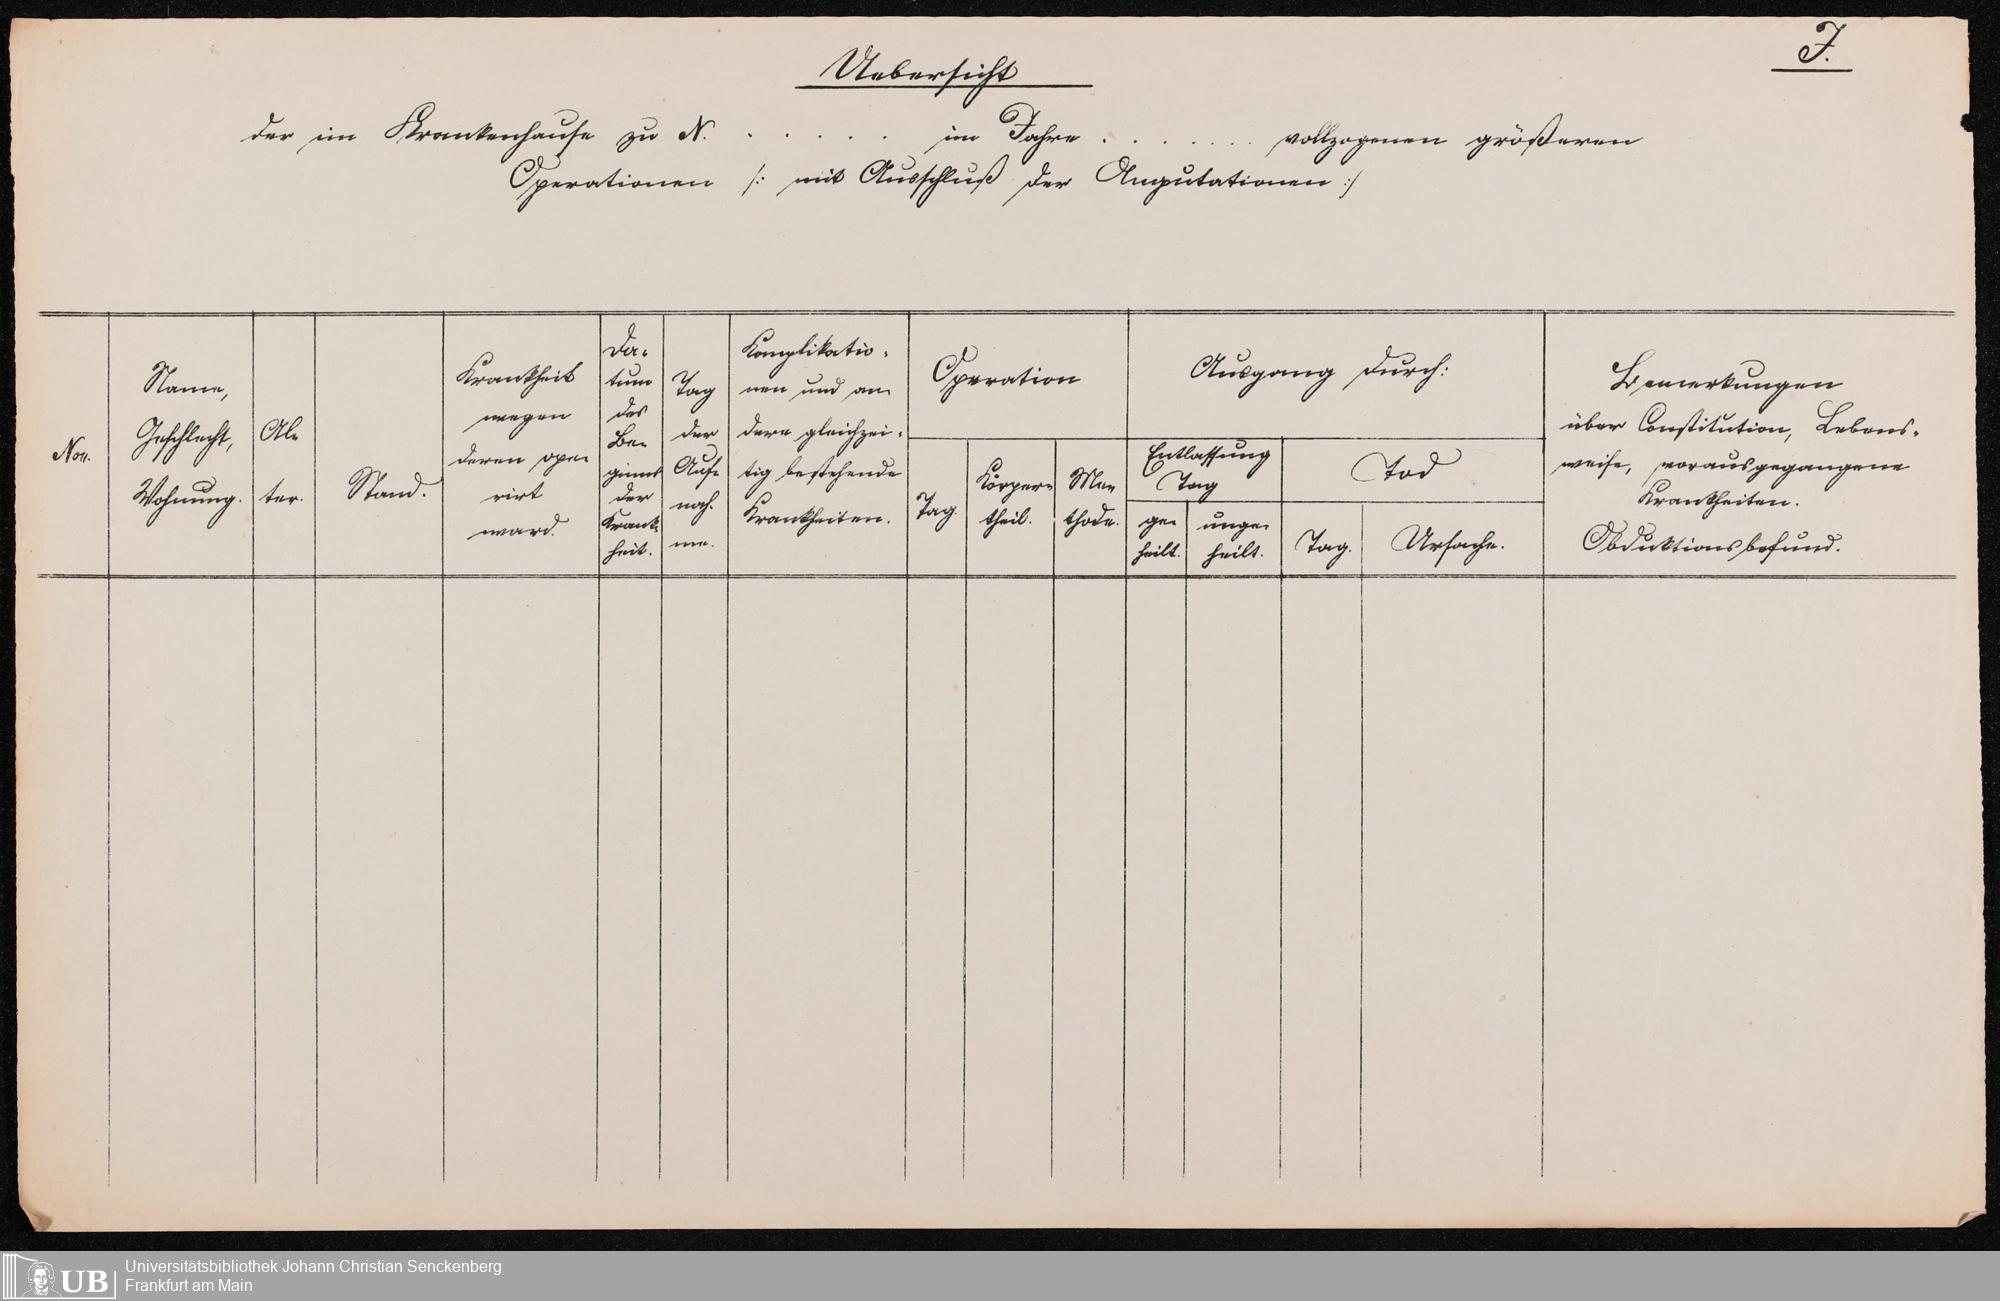 J.
Uebersicht
der im Krankenhause zu N. . . . . . im Jahre . . . . . . . vollzogenen größeren
Operationen /: mit Ausschluß der Amputationen :/
No.
Name,
Geschlecht,
Wohnung.
Al-
ter.
Stand.
Krankheit
wegen
deren ope-
rirt
ward.
Da-
tum
des
Be-
ginns
der
Krank-
heit.
Tag
der
Auf-
nah-
me.
Komplikatio-
nen und an-
dere gleichzei-
tig bestehende
Krankheiten.
Operation
Tag.
Körper-
theil.
Me-
thode.
Ausgang durch:
Entlassung
Tag
ge-
heilt.
unge-
heilt.
Tod
Tag.
Ursache.
Bemerkungen
über Constitution, Lebens-
weise, vorausgegangene
Krankheiten.
Obduktionsbefund.
UB
Universitätsbibliothek Johann Christian Senckenberg
Frankfurt am Main